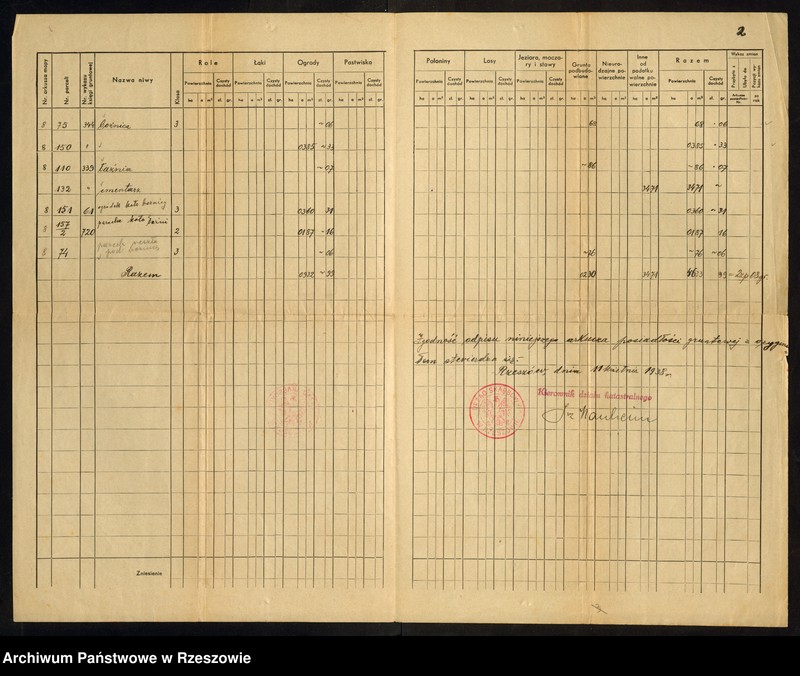 2
Nr. arkusza mapy
Nr. parceli
Nr. wykazu księgi gruntowej
Nazwa niwy
Klasa
Role
Łąki
Ogrody
Pastwiska
Powierzchnia Czysty dochód Powierzchnia Czysty dochód Powierzchnia Czysty dochód Powierzchnia Czysty dochód
ha a m² zł. gr. ha a m² zł. gr. ha a m² zł. gr. ha a m² zł. gr.
Połoniny
Lasy
Jeziora, moczary i stawy
Grunta podbudowlane
Nieurodzajne powierzchnie
Inne od podatku wolne powierzchnie
Razem
Wykaz zmian
Powierzchnia Czysty dochód Powierzchnia Czysty dochód Powierzchnia Czysty dochód
Powierzchnia Czysty dochód
8 75 344 Bożnica 3 ~06 68 68 -06
8 150 0385 ~33 0385 -33
8 110 339 Łaźnia ~07 ~86 ~86 -07
132 " Cmentarz 3471 3471 ~
8 151 61 ogródek koło bożnicy 3 0360 31 0360 ~31
8 157/2 720 parcela koło łaźni 2 0187 -16 0187 -16
8 74 3 ~06 ~76 ~76 ~06
Razem 0932 ~99 0230 3471 4633 99
Zgodność odpisu niniejszego arkusza posiadłości gruntowej z
stwierdza się.-
Rzeszów, dnia 11 kwietnia 1938 r.
Kierownik działu katastralnego
Zniesienie
Archiwum Państwowe w Rzeszowie